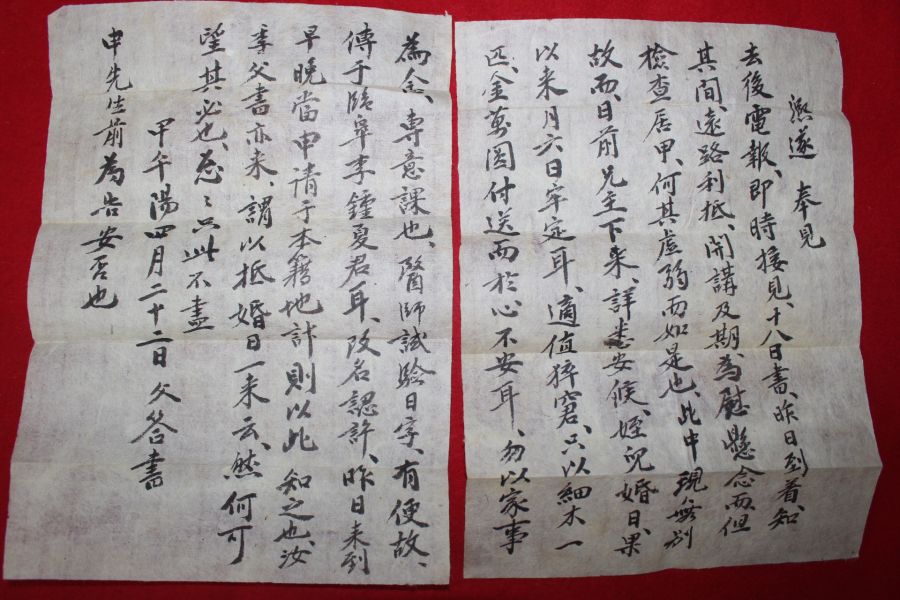 熙遂 奉見
去後電報、即時接見、十八日書、昨日到着、知
其间、遠路利抵、開講及期、為慰懸念、而但
檢查居甲、何其虛弱而如是也、此中現無別
故、而日前兄主下来、詳悉安候、姪児婚日、果
以来月六日牢定耳、適值猝窘、只以細木一
匹、金萬圓付送、而於心不安耳、勿以家事
為念、専意課也、醫師試驗日字、有便故、
傳于臨皐李鍾夏君耳、改名認許、昨日来到
早晚當申請于本籍地計、則以此知之也、汝
季父書亦来、謂以抵婚日一来云、然何可
望其必也、忩〻只此不盡
甲午陽四月二十二日父答書
申先生前為告安否也